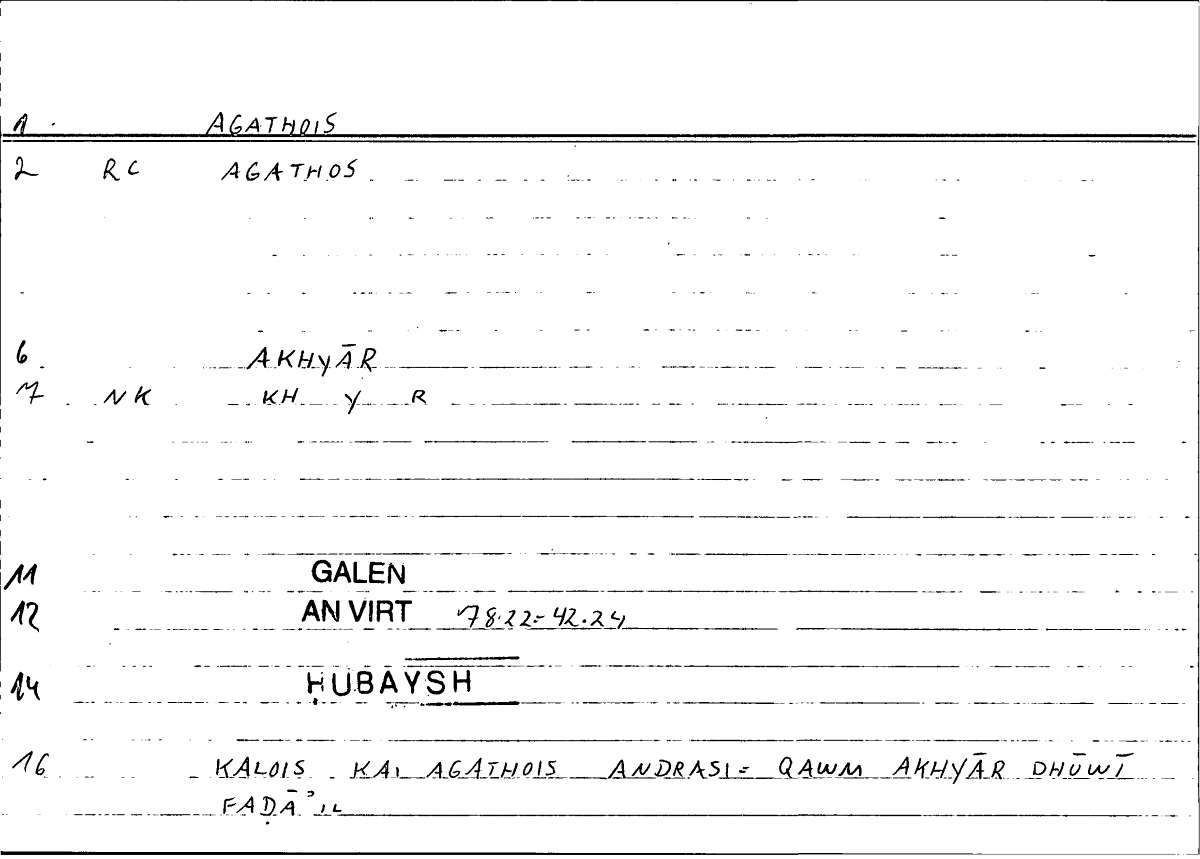 1. AGATHOIS
2 RC AGATHOS
6 AKHYĀR
7 NK KH Y R
11 GALEN
12 AN VIRT 78.22 = 42.24
14 ḤUBAYSH
16 KALOIS KAI AGATHOIS ANDRASI = QAWM AKHYĀR DHŪWĪ
FAḌĀʾIL